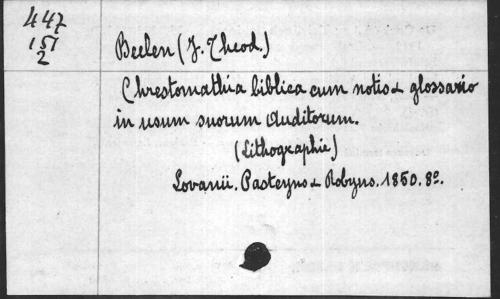 447
151
2
Beelen (J. Theod.)
Chrestomathia biblica cum notis & glossario
in usum suorum Auditorum.
(Lithographie)
Lovanii. Pasteyns & Robyns. 1850. 8º.